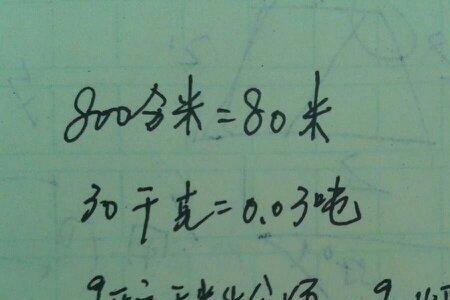 800分米=80米
30千克=0.03吨